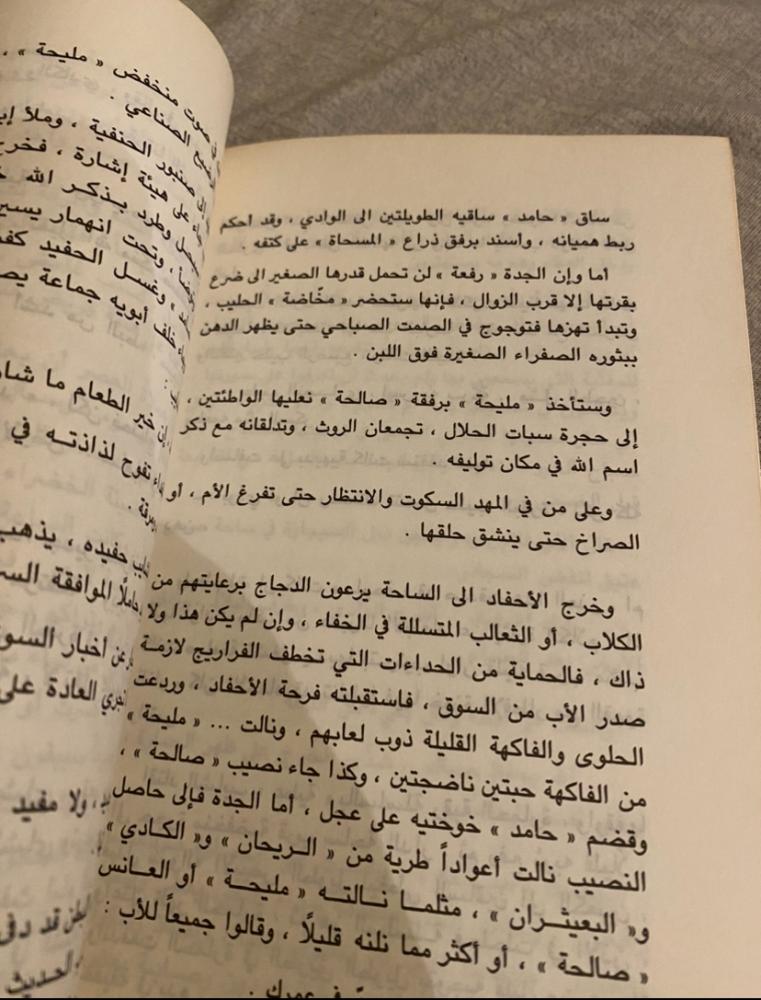 ساق « حامد » ساقيه الطويلتين الى الوادي ، وقد احكم
ربط هميانه ، وأسند برفق ذراع « المسحاة » على كتفه .
أما وإن الجدة « رفعة » لن تحمل قدرها الصغير الى ضرع
بقرتها إلا قرب الزوال ، فإنها ستحضر « مخّاضة » الحليب ،
وتبدأ تهزها فتوجوج في الصمت الصباحي حتى يظهر الدهن
ببثوره الصفراء الصغيرة فوق اللبن .
وستأخذ « مليحة » برفقة « صالحة » نعليها الواطئتين ،
إلى حجرة سبات الحلال ، تجمعان الروث ، وتدلقانه مع ذكر
اسم الله في مكان توليفه .
وعلى من في المهد السكوت والانتظار حتى تفرغ الأم ، أو
الصراخ حتى ينشق حلقها .
وخرج الأحفاد الى الساحة يرعون الدجاج برعايتهم من
الكلاب ، أو الثعالب المتسللة في الخفاء ، وإن لم يكن هذا ولا
ذاك ، فالحماية من الحداءات التي تخطف الفراريج لازمة
صدر الأب من السوق ، فاستقبلته فرحة الأحفاد ، وردعت
الحلوى والفاكهة القليلة ذوب لعابهم ، ونالت ... « مليحة »
من الفاكهة حبتين ناضجتين ، وكذا جاء نصيب « صالحة » ،
وقضم « حامد » خوختيه على عجل ، أما الجدة فإلى حاصل
النصيب نالت أعواداً طرية من « الريحان » و« الكادي »
و« البعيثران » ، مثلما نالته « مليحة » أو العانس
« صالحة » ، أو أكثر مما نلنه قليلًا ، وقالوا جميعاً للأب :
في عمرك .
صوت منخفض « مليحة » ،
الصناعي .
صنبور الحنفية ، وملأ
على هيئة إشارة ، فخرج
وطرد بذكر الله
وتحت انهمار
وغسل الحفيد
خلف أبويه جماعة
خير الطعام ما
تفوح لذاذته في
حفيده ، يذهب
الموافقة
أخبار السوق
العادة على
ولا مفيد
قد
الحديث